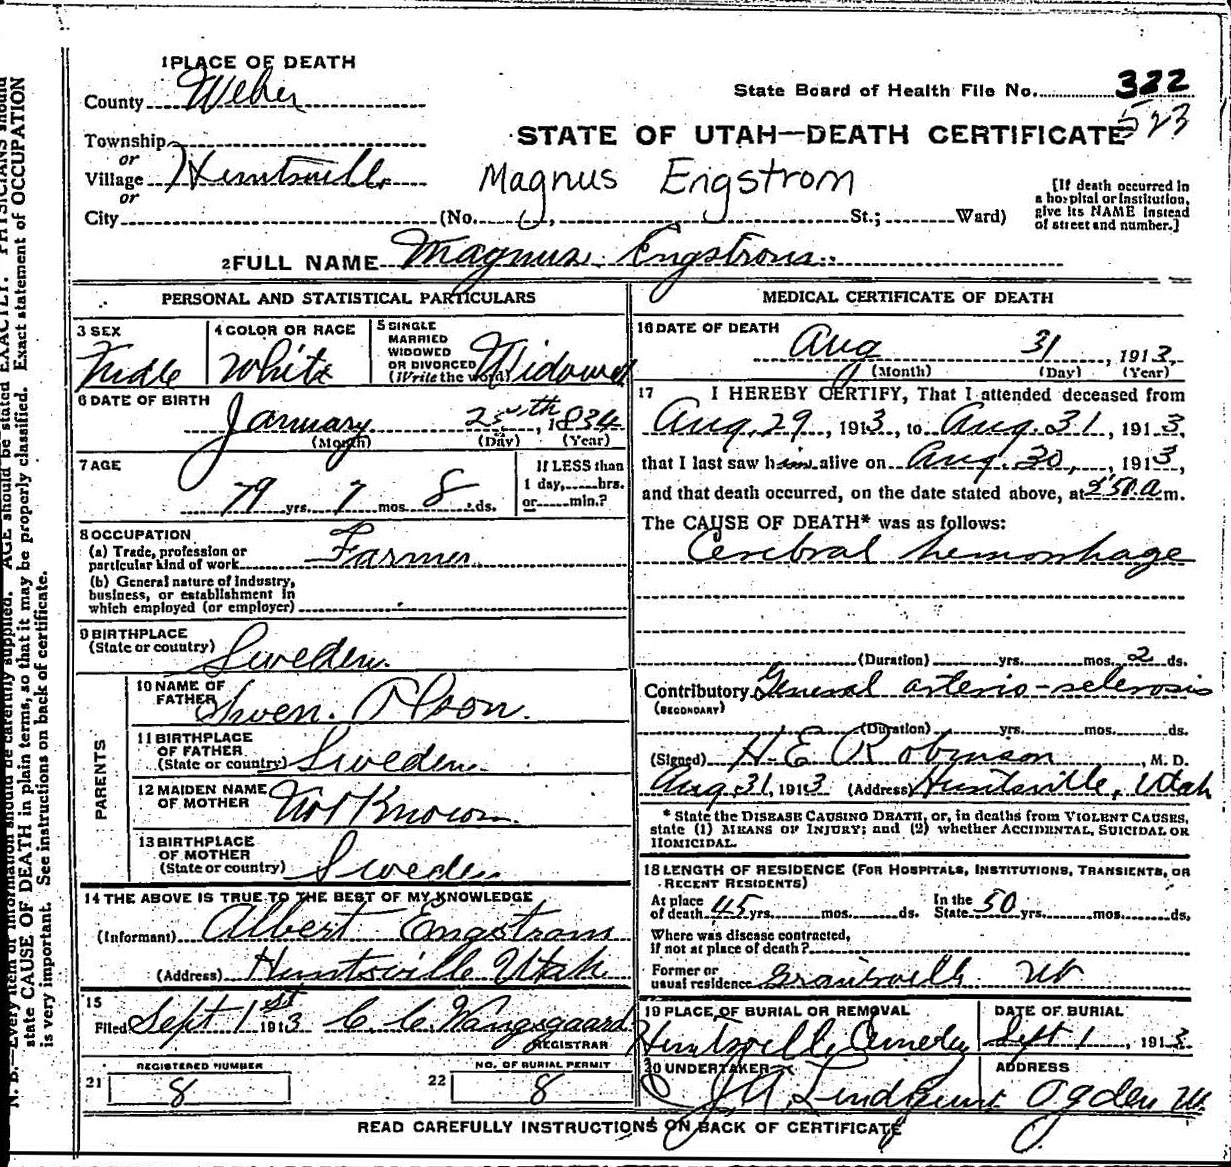 1 PLACE OF DEATH
County Weber
State Board of Health File No. 322
523
STATE OF UTAH—DEATH CERTIFICATE
Township
or
Village Huntsville
or
City (No. , St.; Ward)
Magnus Engstrom
[If death occurred in
a hospital or institution,
give its NAME instead
of street and number.]
2 FULL NAME Magnus Engstrom
PERSONAL AND STATISTICAL PARTICULARS
3 SEX
Male
4 COLOR OR RACE
White
5 SINGLE
MARRIED
WIDOWED
OR DIVORCED
(Write the word)
Widowed
6 DATE OF BIRTH
January 25th, 1834
(Month) (Day) (Year)
7 AGE
79 yrs. 7 mos. 8 ds.
If LESS than
1 day, hrs.
or min.?
8 OCCUPATION
(a) Trade, profession or
particular kind of work Farmer
(b) General nature of industry,
business, or establishment in
which employed (or employer)
9 BIRTHPLACE
(State or country) Sweden
PARENTS
10 NAME OF
FATHER Swen Olson
11 BIRTHPLACE
OF FATHER
(State or country) Sweden
12 MAIDEN NAME
OF MOTHER Not Known
13 BIRTHPLACE
OF MOTHER
(State or country) Sweden
14 THE ABOVE IS TRUE TO THE BEST OF MY KNOWLEDGE
(Informant) Albert Engstrom
(Address) Huntsville Utah
15
Filed Sept 1st 1913 C. C. Wangsgaard
REGISTRAR
21 REGISTERED NUMBER
8
22 NO. OF BURIAL PERMIT
8
MEDICAL CERTIFICATE OF DEATH
16 DATE OF DEATH
Aug 31, 1913
(Month) (Day) (Year)
17 I HEREBY CERTIFY, That I attended deceased from
Aug. 29, 1913, to Aug. 31, 1913,
that I last saw him alive on Aug. 30, 1913,
and that death occurred, on the date stated above, at 2:50 a m.
The CAUSE OF DEATH* was as follows:
Cerebral hemorrhage
(Duration) yrs. mos. 2 ds.
Contributory General arterio-sclerosis
(SECONDARY)
(Duration) yrs. mos. ds.
(Signed) H. E. Robinson, M. D.
Aug. 31, 1913 (Address) Huntsville, Utah
* State the DISEASE CAUSING DEATH, or, in deaths from VIOLENT CAUSES,
state (1) MEANS OF INJURY; and (2) whether ACCIDENTAL, SUICIDAL OR
HOMICIDAL.
18 LENGTH OF RESIDENCE (FOR HOSPITALS, INSTITUTIONS, TRANSIENTS, OR
RECENT RESIDENTS)
At place
of death 45 yrs. mos. ds.
In the
State 50 yrs. mos. ds.
Where was disease contracted,
if not at place of death?
Former or
usual residence Grantsville Ut
19 PLACE OF BURIAL OR REMOVAL
Huntsville Cemetery
DATE OF BURIAL
Sept 1, 1913
20 UNDERTAKER
J A Lindquist
ADDRESS
Ogden Ut.
READ CAREFULLY INSTRUCTIONS ON BACK OF CERTIFICATE
N. B.—Every item of information should be carefully supplied. AGE should be stated EXACTLY. PHYSICIANS should
state CAUSE OF DEATH in plain terms, so that it may be properly classified. Exact statement of OCCUPATION
is very important. See instructions on back of certificate.